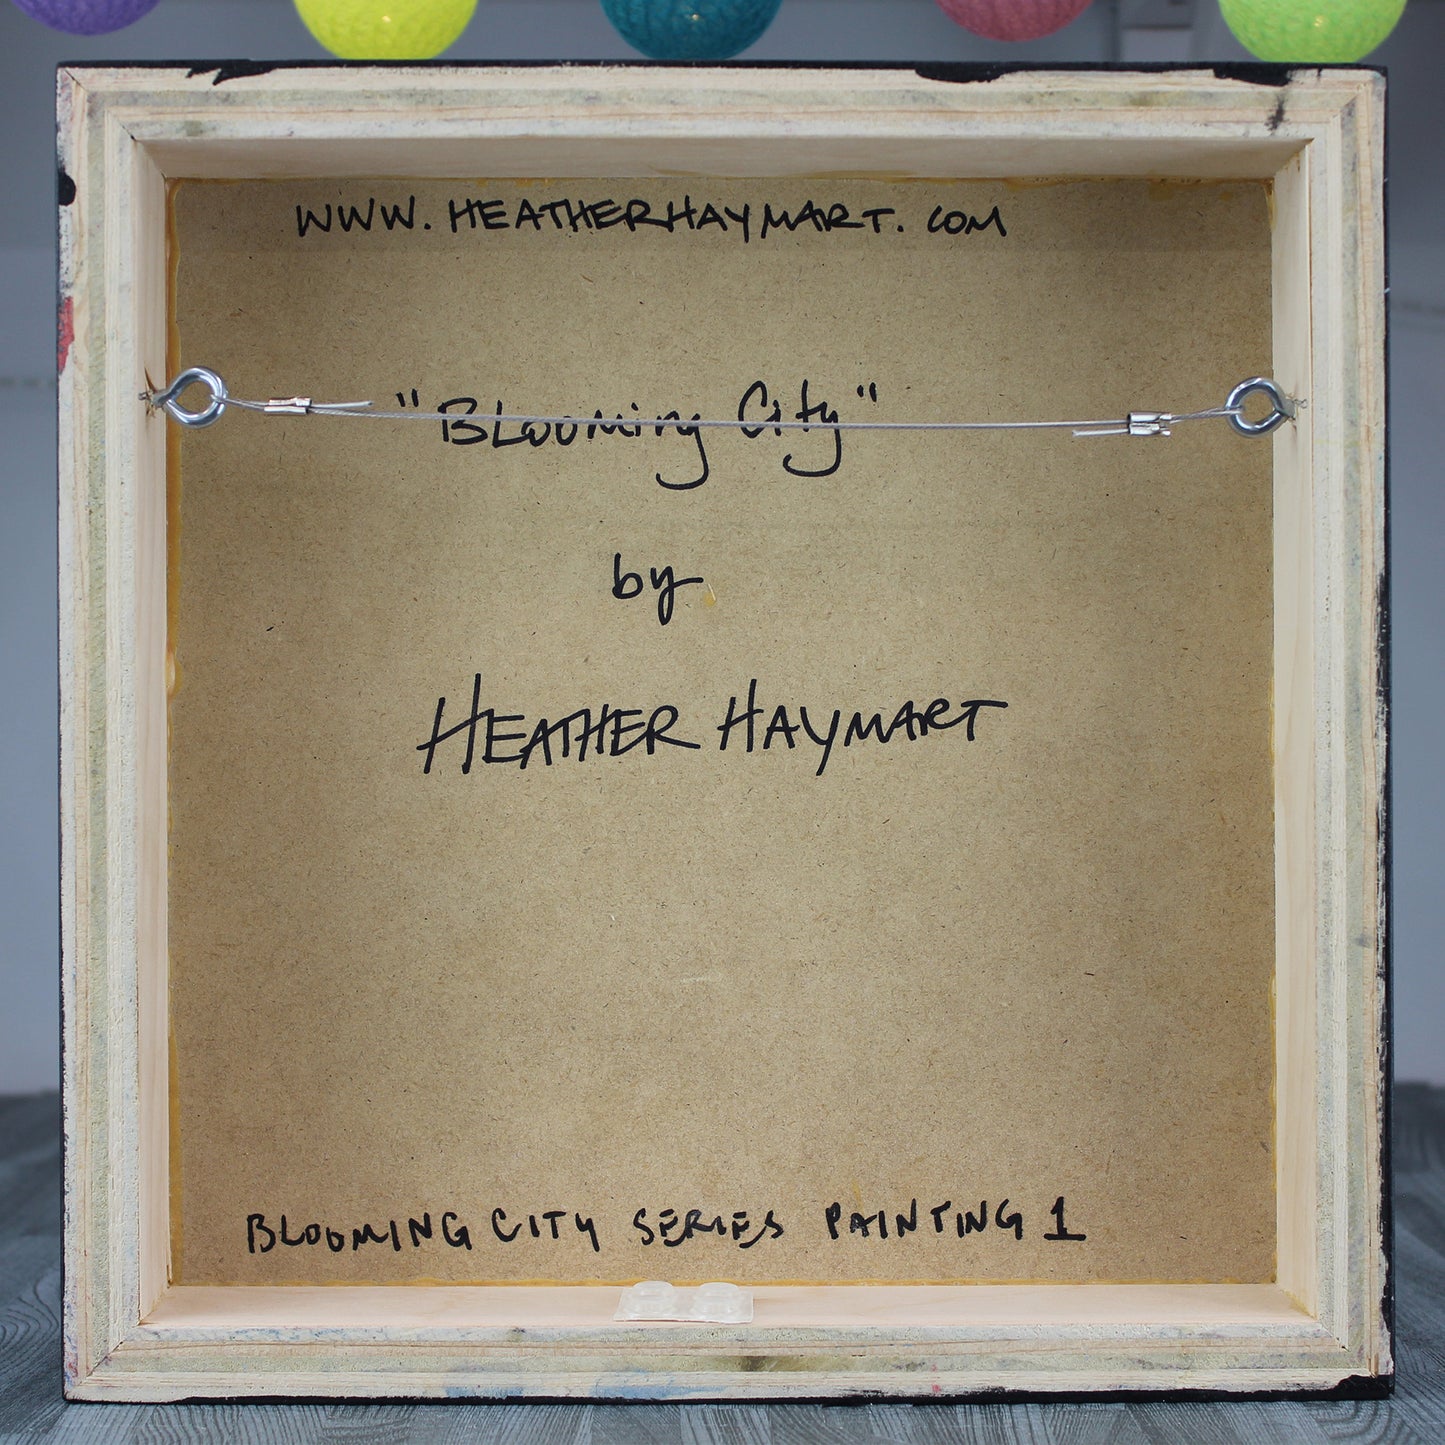 WWW.HEATHERHAYMART.COM
"Blooming City"
by
HEATHER HAYMART
BLOOMING CITY SERIES PAINTING 1